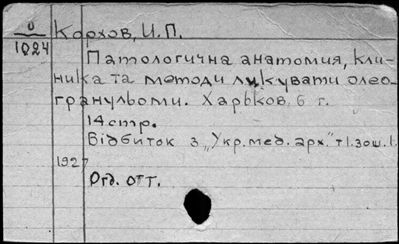 U
1024
Корхов, И. П.
Патологична анатомия, кли-
ника та методи лукувати олео-
гранульоми. Харьков. б. г.
14 стр.
Відбиток з „Укр. мед. арх." т I. зош. I.
1927
Отд. отт.